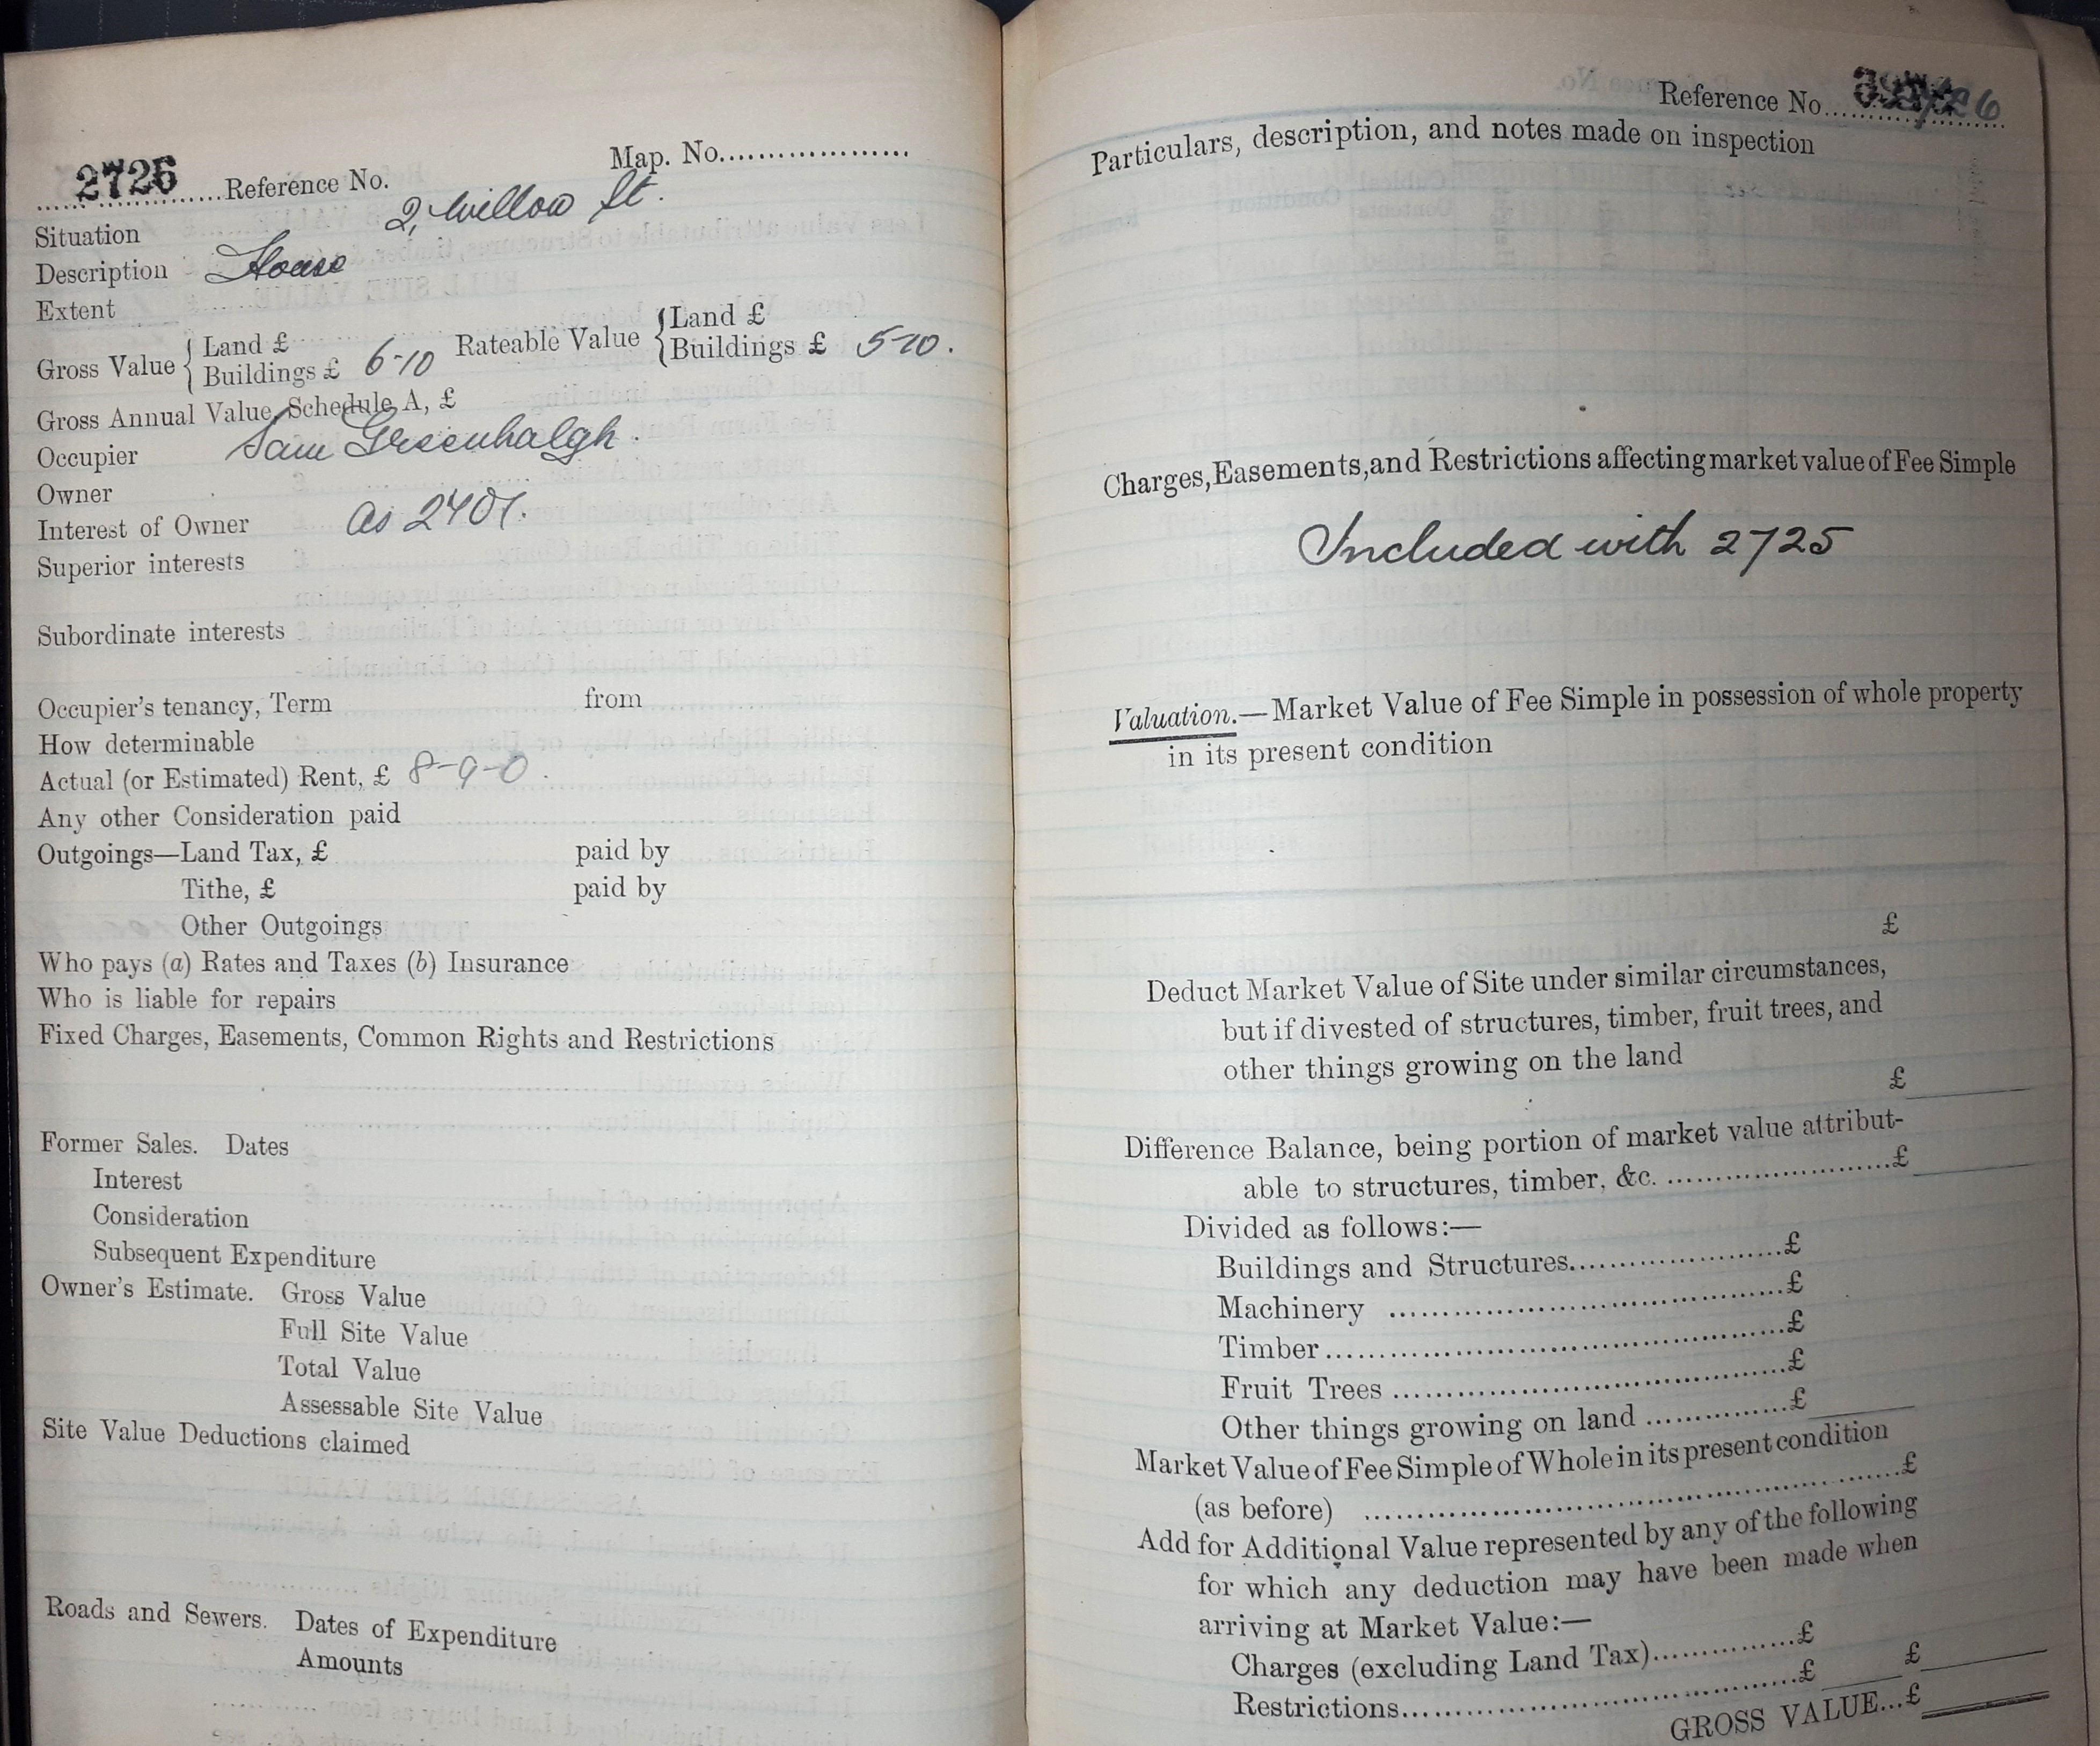 Map. No...................
2726 ......Reference No.
Situation 2, Willow St.
Description House
Extent
Gross Value { Land £
Buildings £ 6-10 Rateable Value { Land £
Buildings £ 5-10.
Gross Annual Value, Schedule A, £
Occupier Sam Greenhalgh.
Owner
Interest of Owner as 2407.
Superior interests
Subordinate interests
Occupier's tenancy, Term from
How determinable
Actual (or Estimated) Rent, £ 8-9-0.
Any other Consideration paid
Outgoings—Land Tax, £ paid by
Tithe, £ paid by
Other Outgoings
Who pays (a) Rates and Taxes (b) Insurance
Who is liable for repairs
Fixed Charges, Easements, Common Rights and Restrictions
Former Sales. Dates
Interest
Consideration
Subsequent Expenditure
Owner's Estimate. Gross Value
Full Site Value
Total Value
Assessable Site Value
Site Value Deductions claimed
Roads and Sewers. Dates of Expenditure
Amounts
Reference No.
Particulars, description, and notes made on inspection
Charges, Easements, and Restrictions affecting market value of Fee Simple
Included with 2725
Valuation.—Market Value of Fee Simple in possession of whole property
in its present condition
£
Deduct Market Value of Site under similar circumstances,
but if divested of structures, timber, fruit trees, and
other things growing on the land
£
Difference Balance, being portion of market value attribut-
able to structures, timber, &c. ......................£
Divided as follows:—
Buildings and Structures.....................£
Machinery .......................................£
Timber.............................................£
Fruit Trees ......................................£
Other things growing on land ..............£
Market Value of Fee Simple of Whole in its present condition
(as before) .....................................................£
Add for Additional Value represented by any of the following
for which any deduction may have been made when
arriving at Market Value:—
Charges (excluding Land Tax)..............£
Restrictions.......................................£ £
GROSS VALUE...£